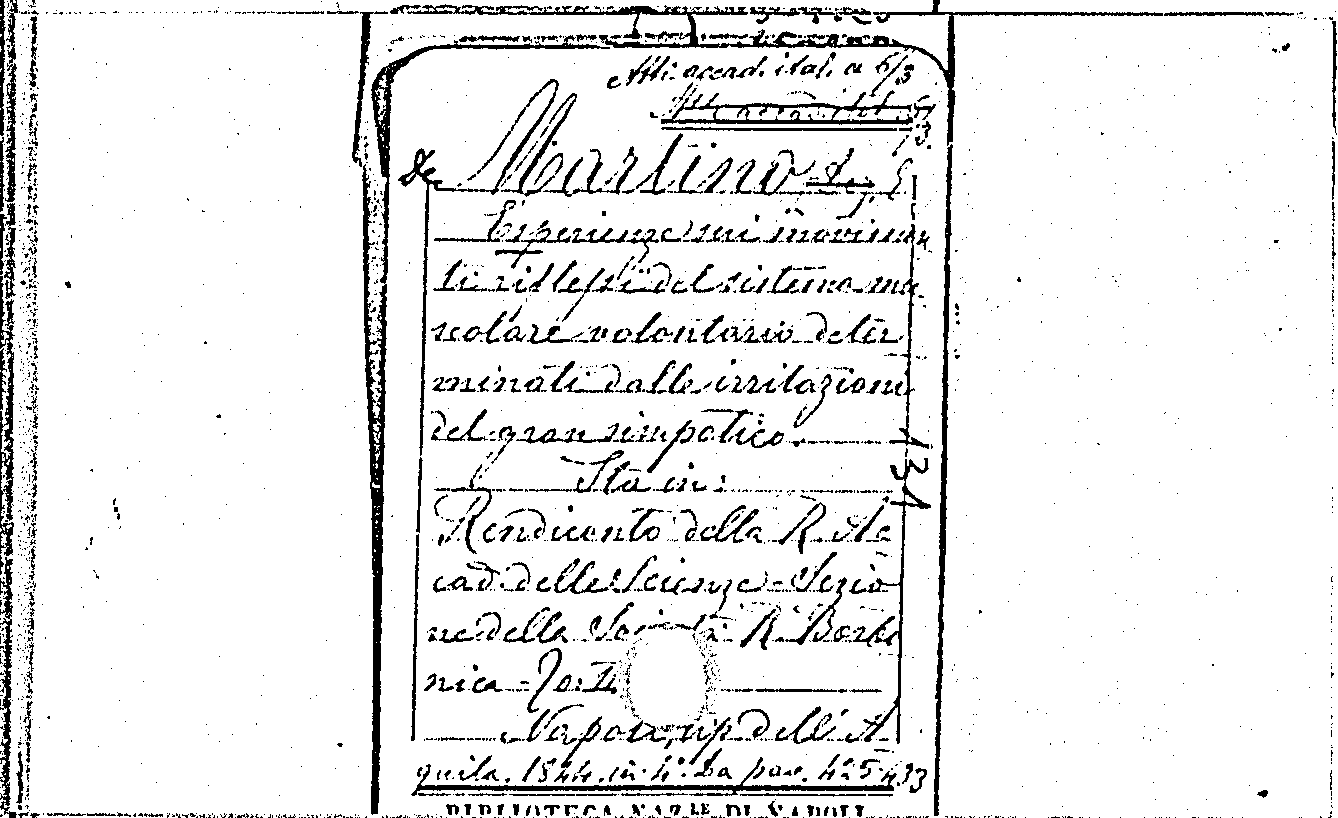 Atti accad. ital. a 6/3
De Martino
Esperienze sui movimen
ti riflessi del sistema mu
scolare volontario deter
minati dalle irritazioni
del gran simpatico.
Sta in:
131
Rendiconto della R. Ac
cad. delle Scienze - Sezio
ne della Società R. Borbo
nica - To. II
Napoli, tip dell' A
quila. 1844. in 4°. Da pag. 425-433
BIBLIOTECA NAZ.LE DI NAPOLI